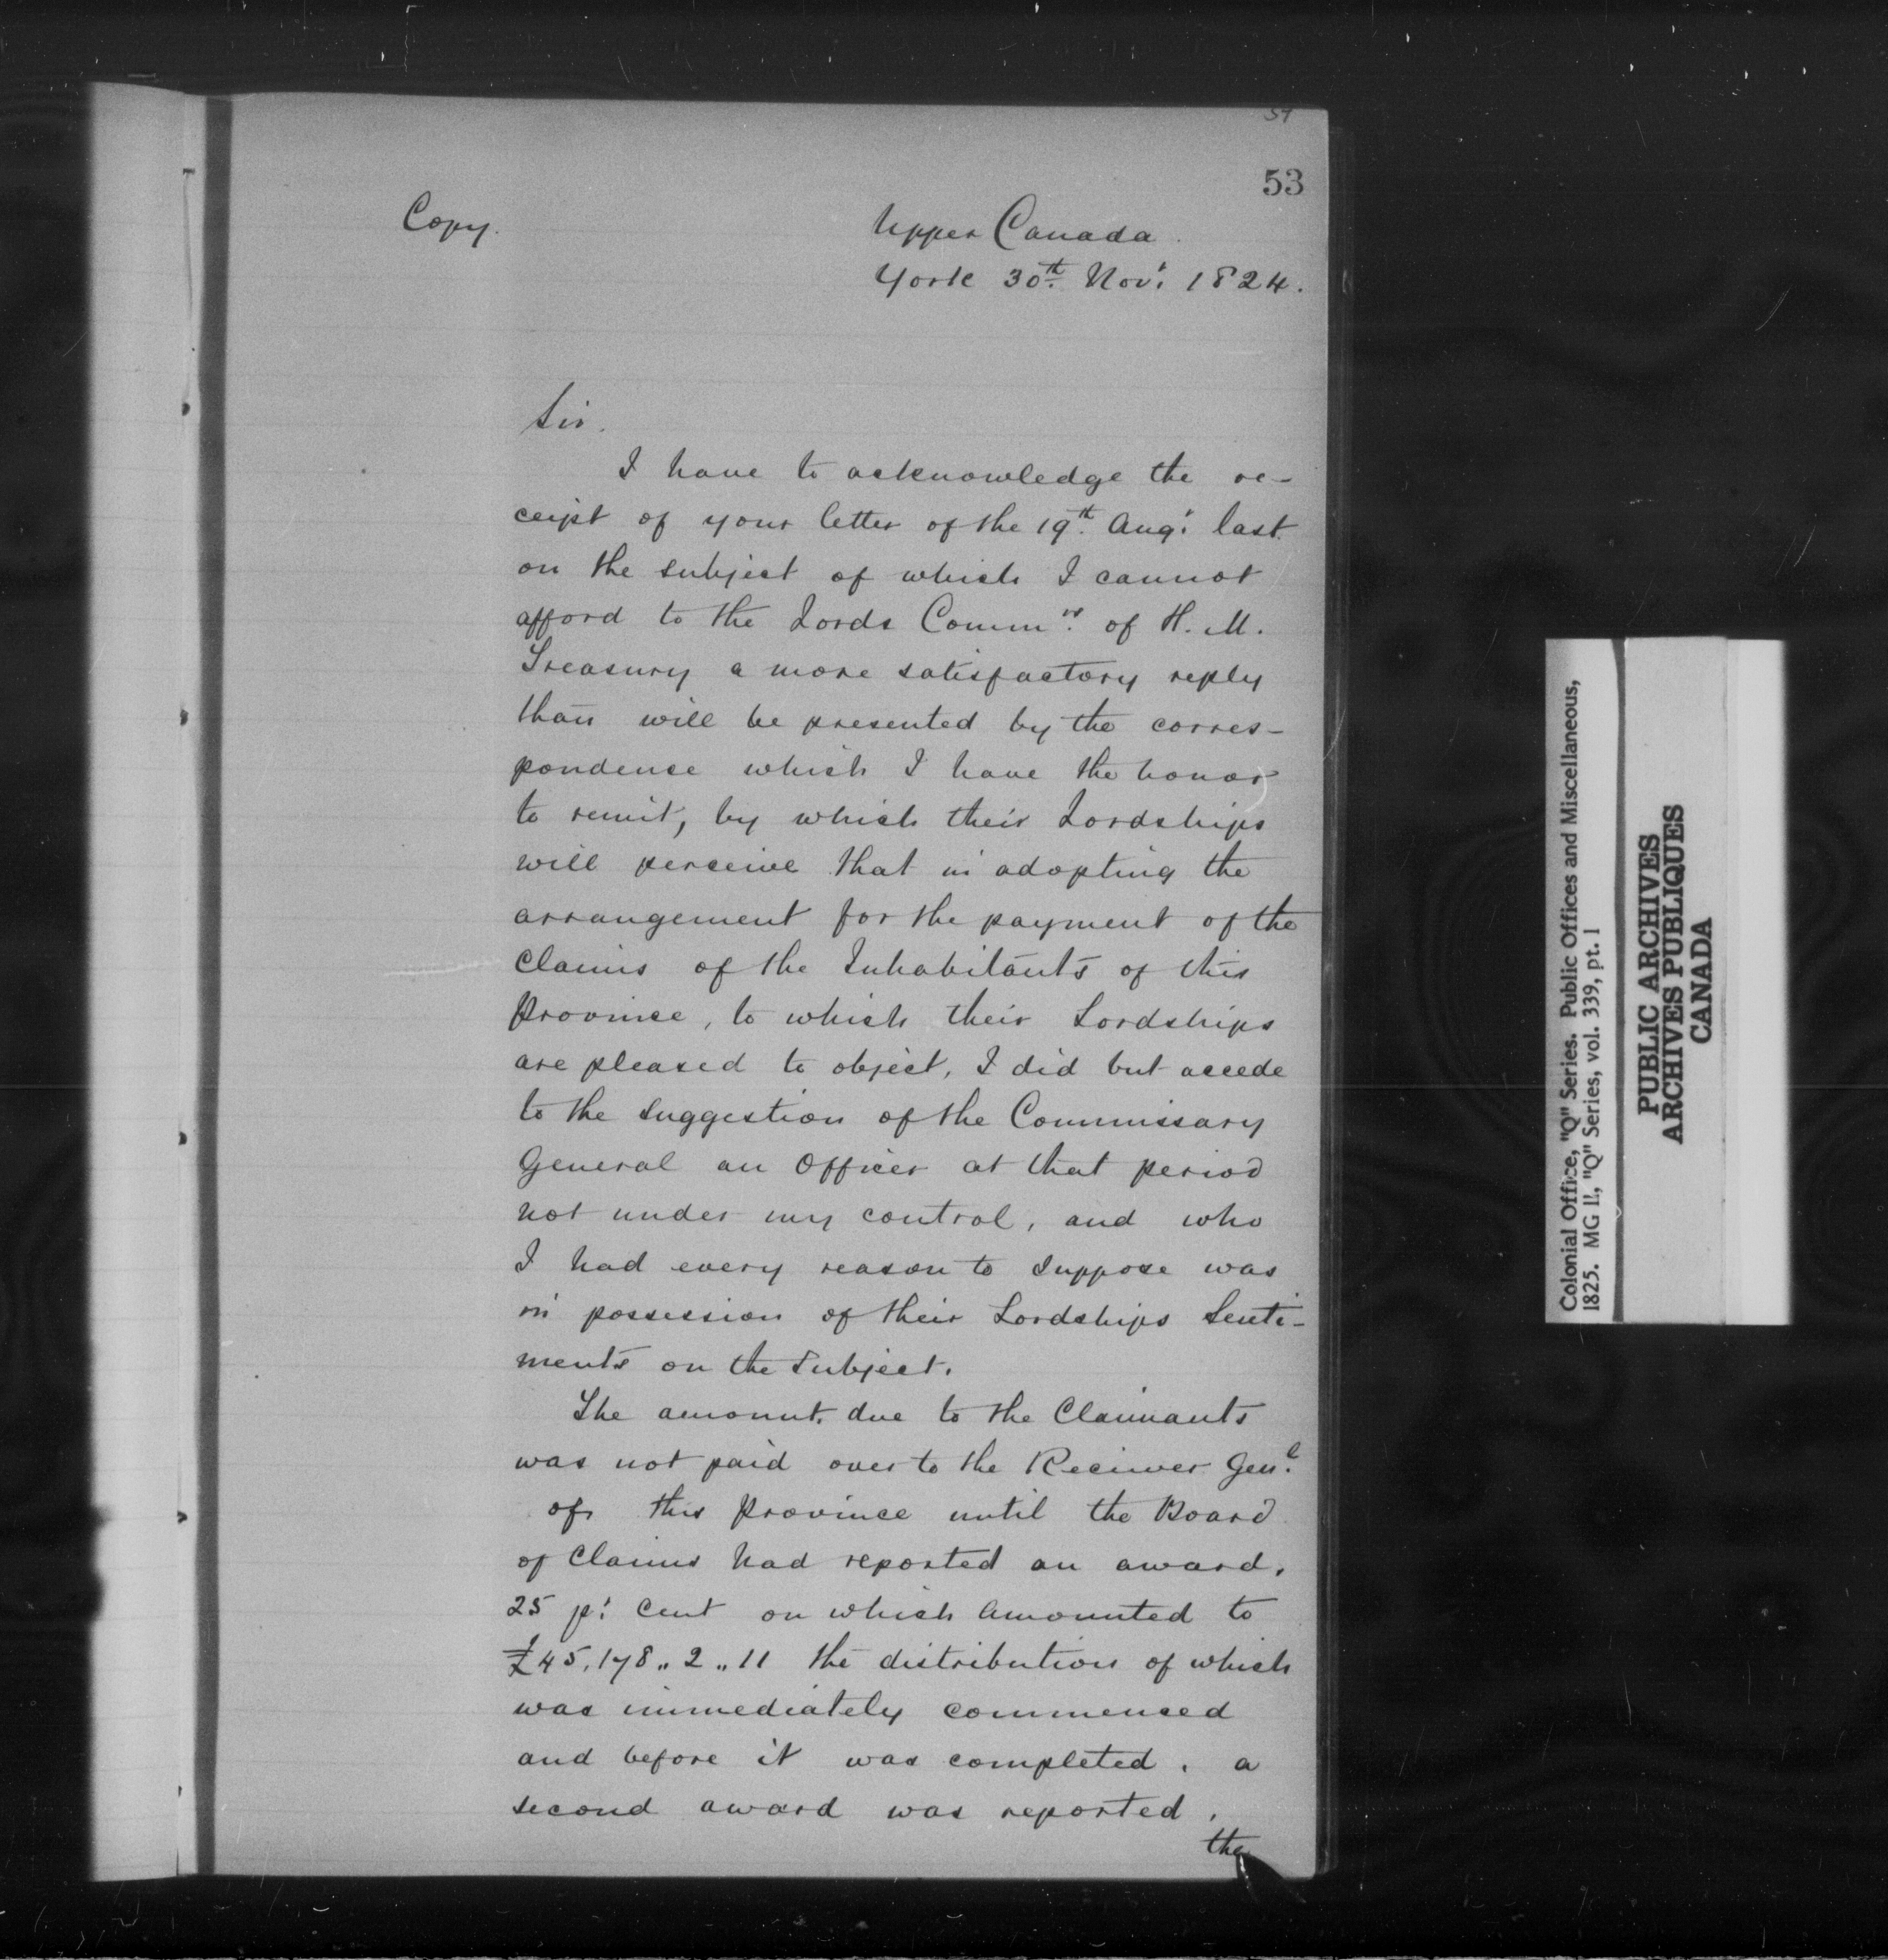 53
Copy.
Upper Canada.
York 30th Novr 1824.
Sir.
I have to acknowledge the re-
ceipt of your letter of the 19th Augt last
on the subject of which I cannot
afford to the Lords Commrs of H. M.
Treasury a more satisfactory reply
than will be presented by the corres-
pondence which I have the honor
to remit, by which their Lordships
will perceive that in adopting the
arrangement for the payment of the
Claims of the Inhabitants of this
Province, to which their Lordships
are pleased to object, I did but accede
to the suggestion of the Commissary
General an Officer at that period
not under my control, and who
I had every reason to suppose was
in possession of their Lordships Senti-
ments on the Subject.
The amount due to the Claimants
was not paid over to the Receiver Genl
of this Province until the Board
of Claims had reported an award,
25 pr Cent on which amounted to
£45,178,, 2,, 11 the distribution of which
was immediately commenced
and before it was completed, a
second award was reported,
the
Colonial Office, "Q" Series. Public Offices and Miscellaneous,
1825. MG 11, "Q" Series, vol. 339, pt. 1
PUBLIC ARCHIVES
ARCHIVES PUBLIQUES
CANADA